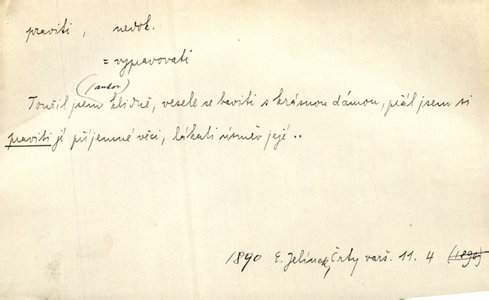 praviti, nedok.
= vypravovati
(autor)
Toužil jsem klidně, vesele se baviti s krásnou dámou, přál jsem si
praviti jí příjemné věci, lákati úsměv její ..
1890 E. Jelínek, Črty varš. 11. 4 (1890)